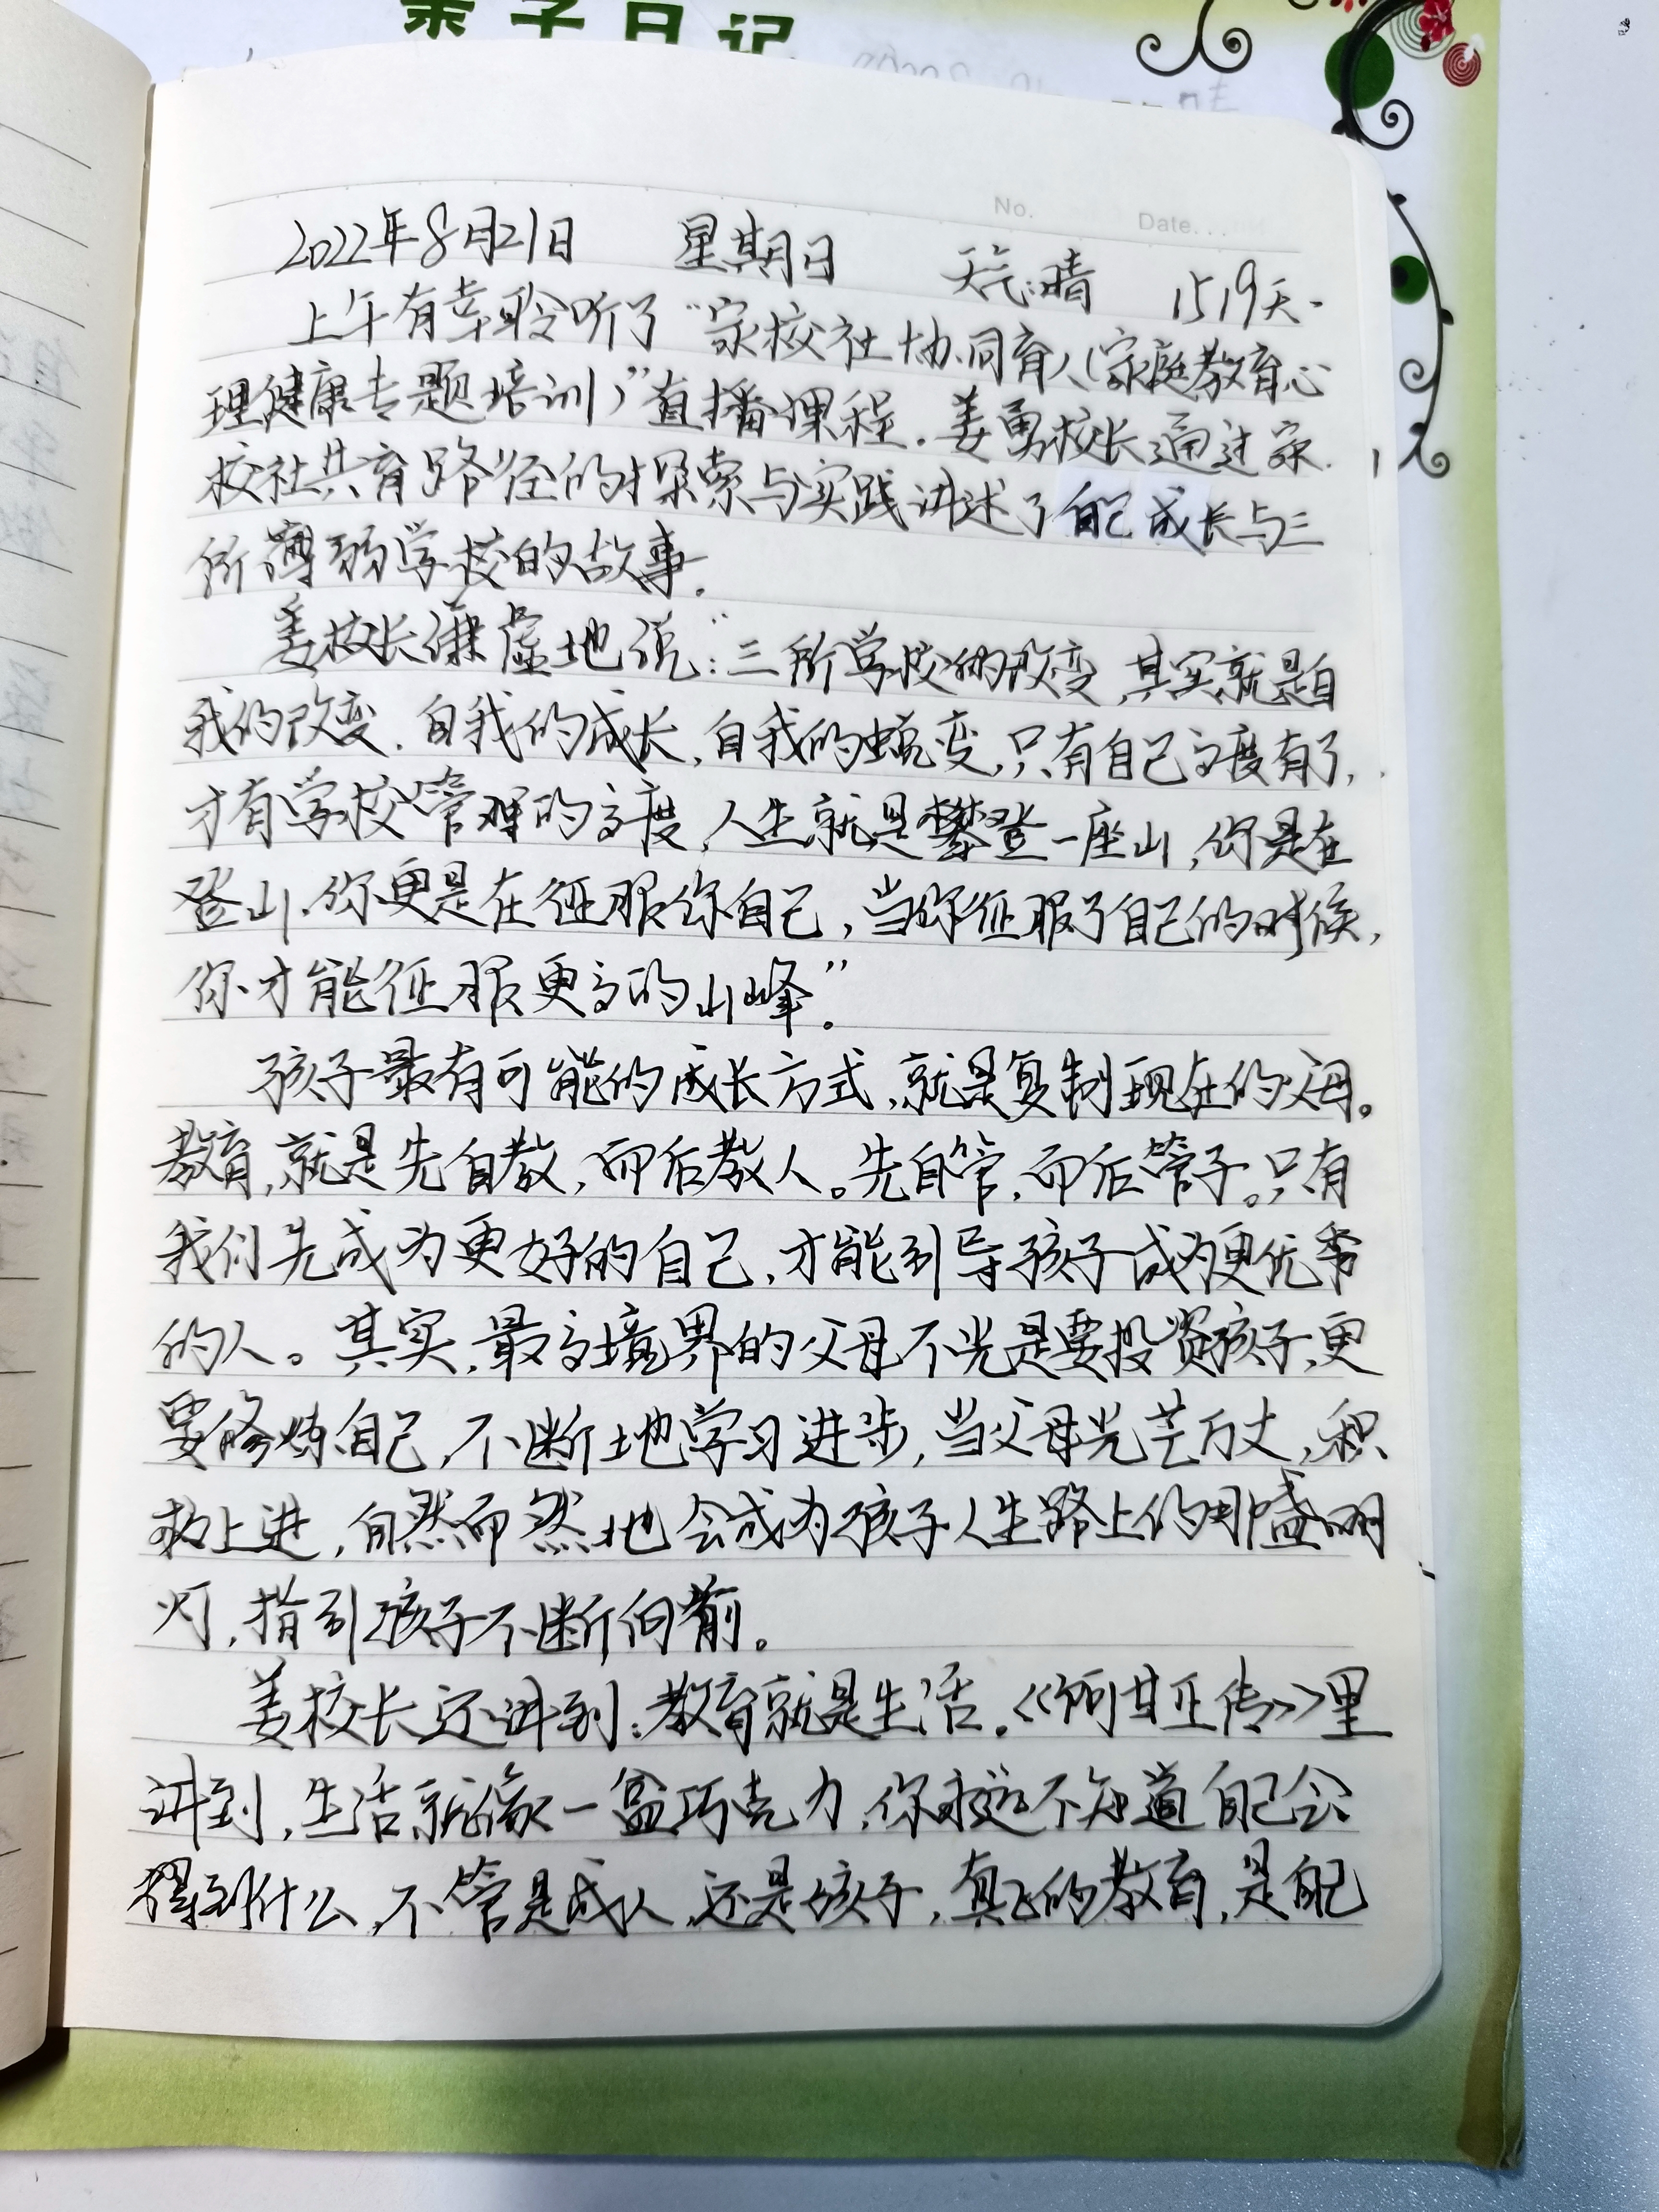 亲子日记
No.
Date...
2022年8月21日 星期日 天气:晴 1519天.
上午有幸聆听了“家校社协同育人(家庭教育心
理健康专题培训)”直播课程.姜勇校长通过家
校社共育路径的探索与实践讲述了自己成长与三
所薄弱学校的故事.
姜校长谦虚地说:“三所学校的改变,其实就是自
我的改变.自我的成长,自我的蜕变,只有自己高度有了,
才有学校管理的高度,人生就是攀登一座山,你是在
登山.你更是在征服你自己,当你征服了自己的时候,
你才能征服更高的山峰”。
孩子最有可能的成长方式,就是复制现在的父母。
教育,就是先自教,而后教人。先自管,而后管子。只有
我们先成为更好的自己,才能引导孩子成为更优秀
的人。其实,最高境界的父母不光是要投资孩子,更
要修炼自己,不断地学习进步,当父母光芒万丈,积
极上进,自然而然地会成为孩子人生路上的那盏明
灯,指引孩子不断向前。
姜校长还讲到:教育就是生活.《阿甘正传》里
讲到,生活就像一盒巧克力,你永远不知道自己会
得到什么,不管是成人,还是孩子,真正的教育,是自己